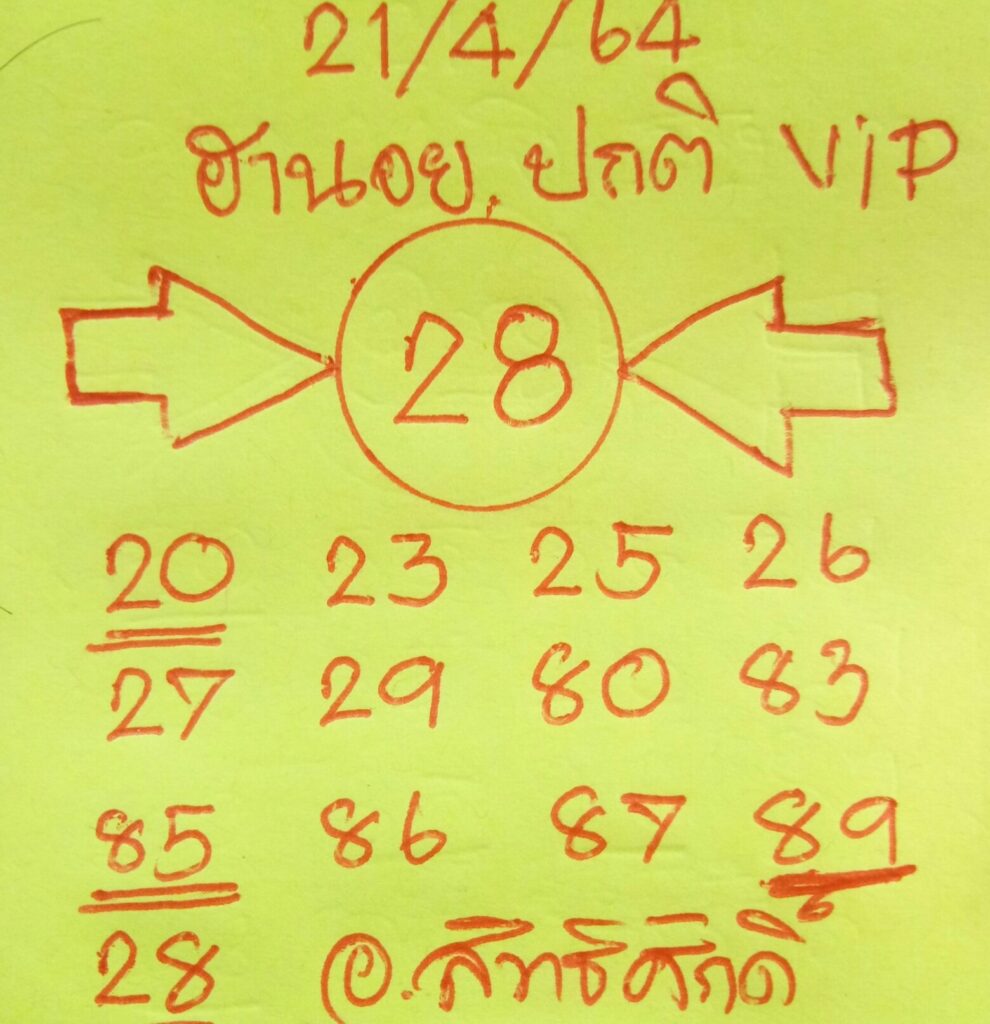 21/4/64
ฮานอย, ปกติ ViP
28
20 23 25 26
27 29 80 83
85 86 87 89
28 อ.สิทธิศักดิ์